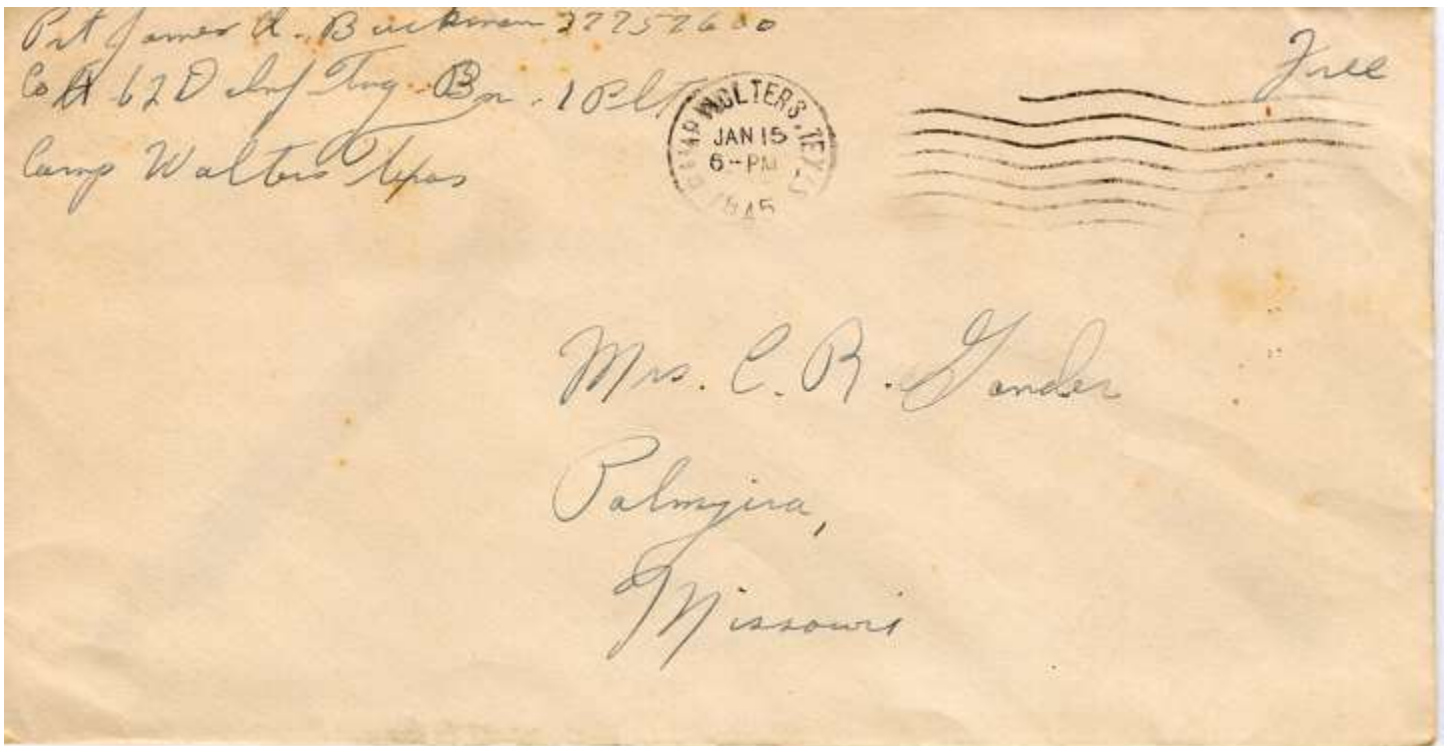 Pvt James A. Buckman 37757600
Free
Co A 62D Inf Tng Bn. 1 Plt
Camp Walters Texas
CAMP WOLTERS, TEXAS
JAN 15
6-PM
1945
Mrs. C. R. Gander
Palmyra,
Missouri